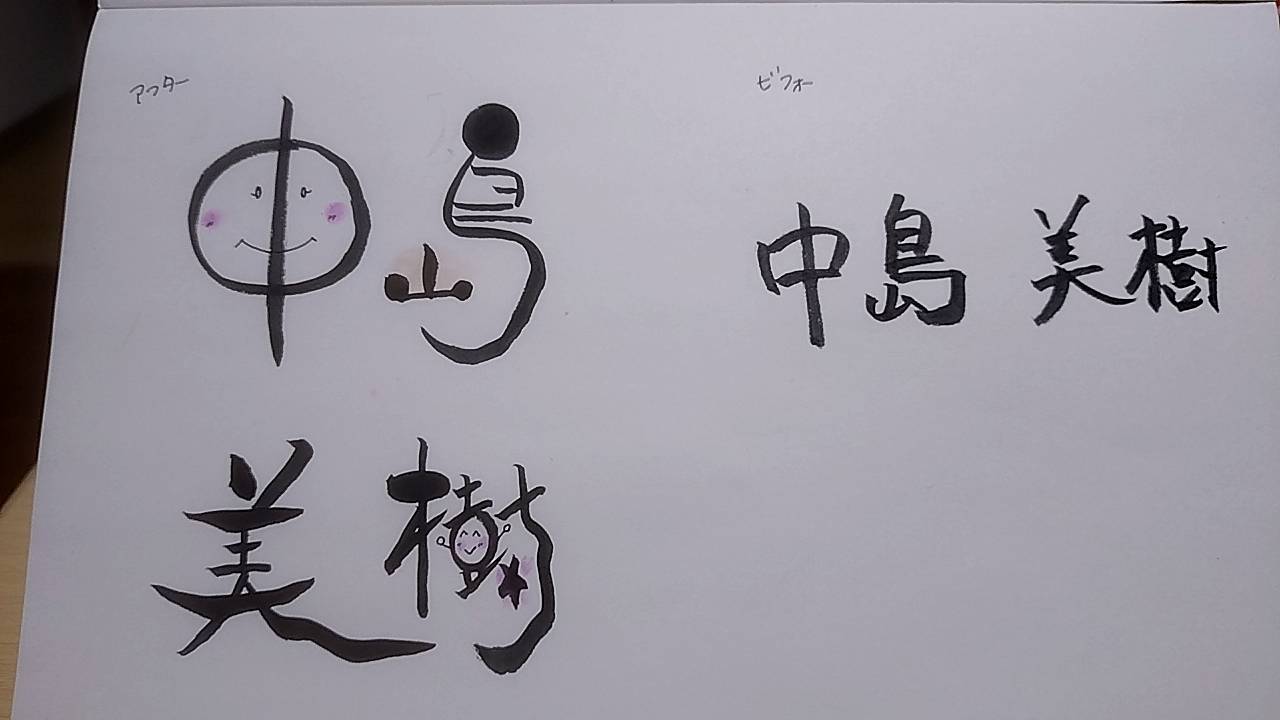 アフター
中島
美樹
ビフォー
中島 美樹